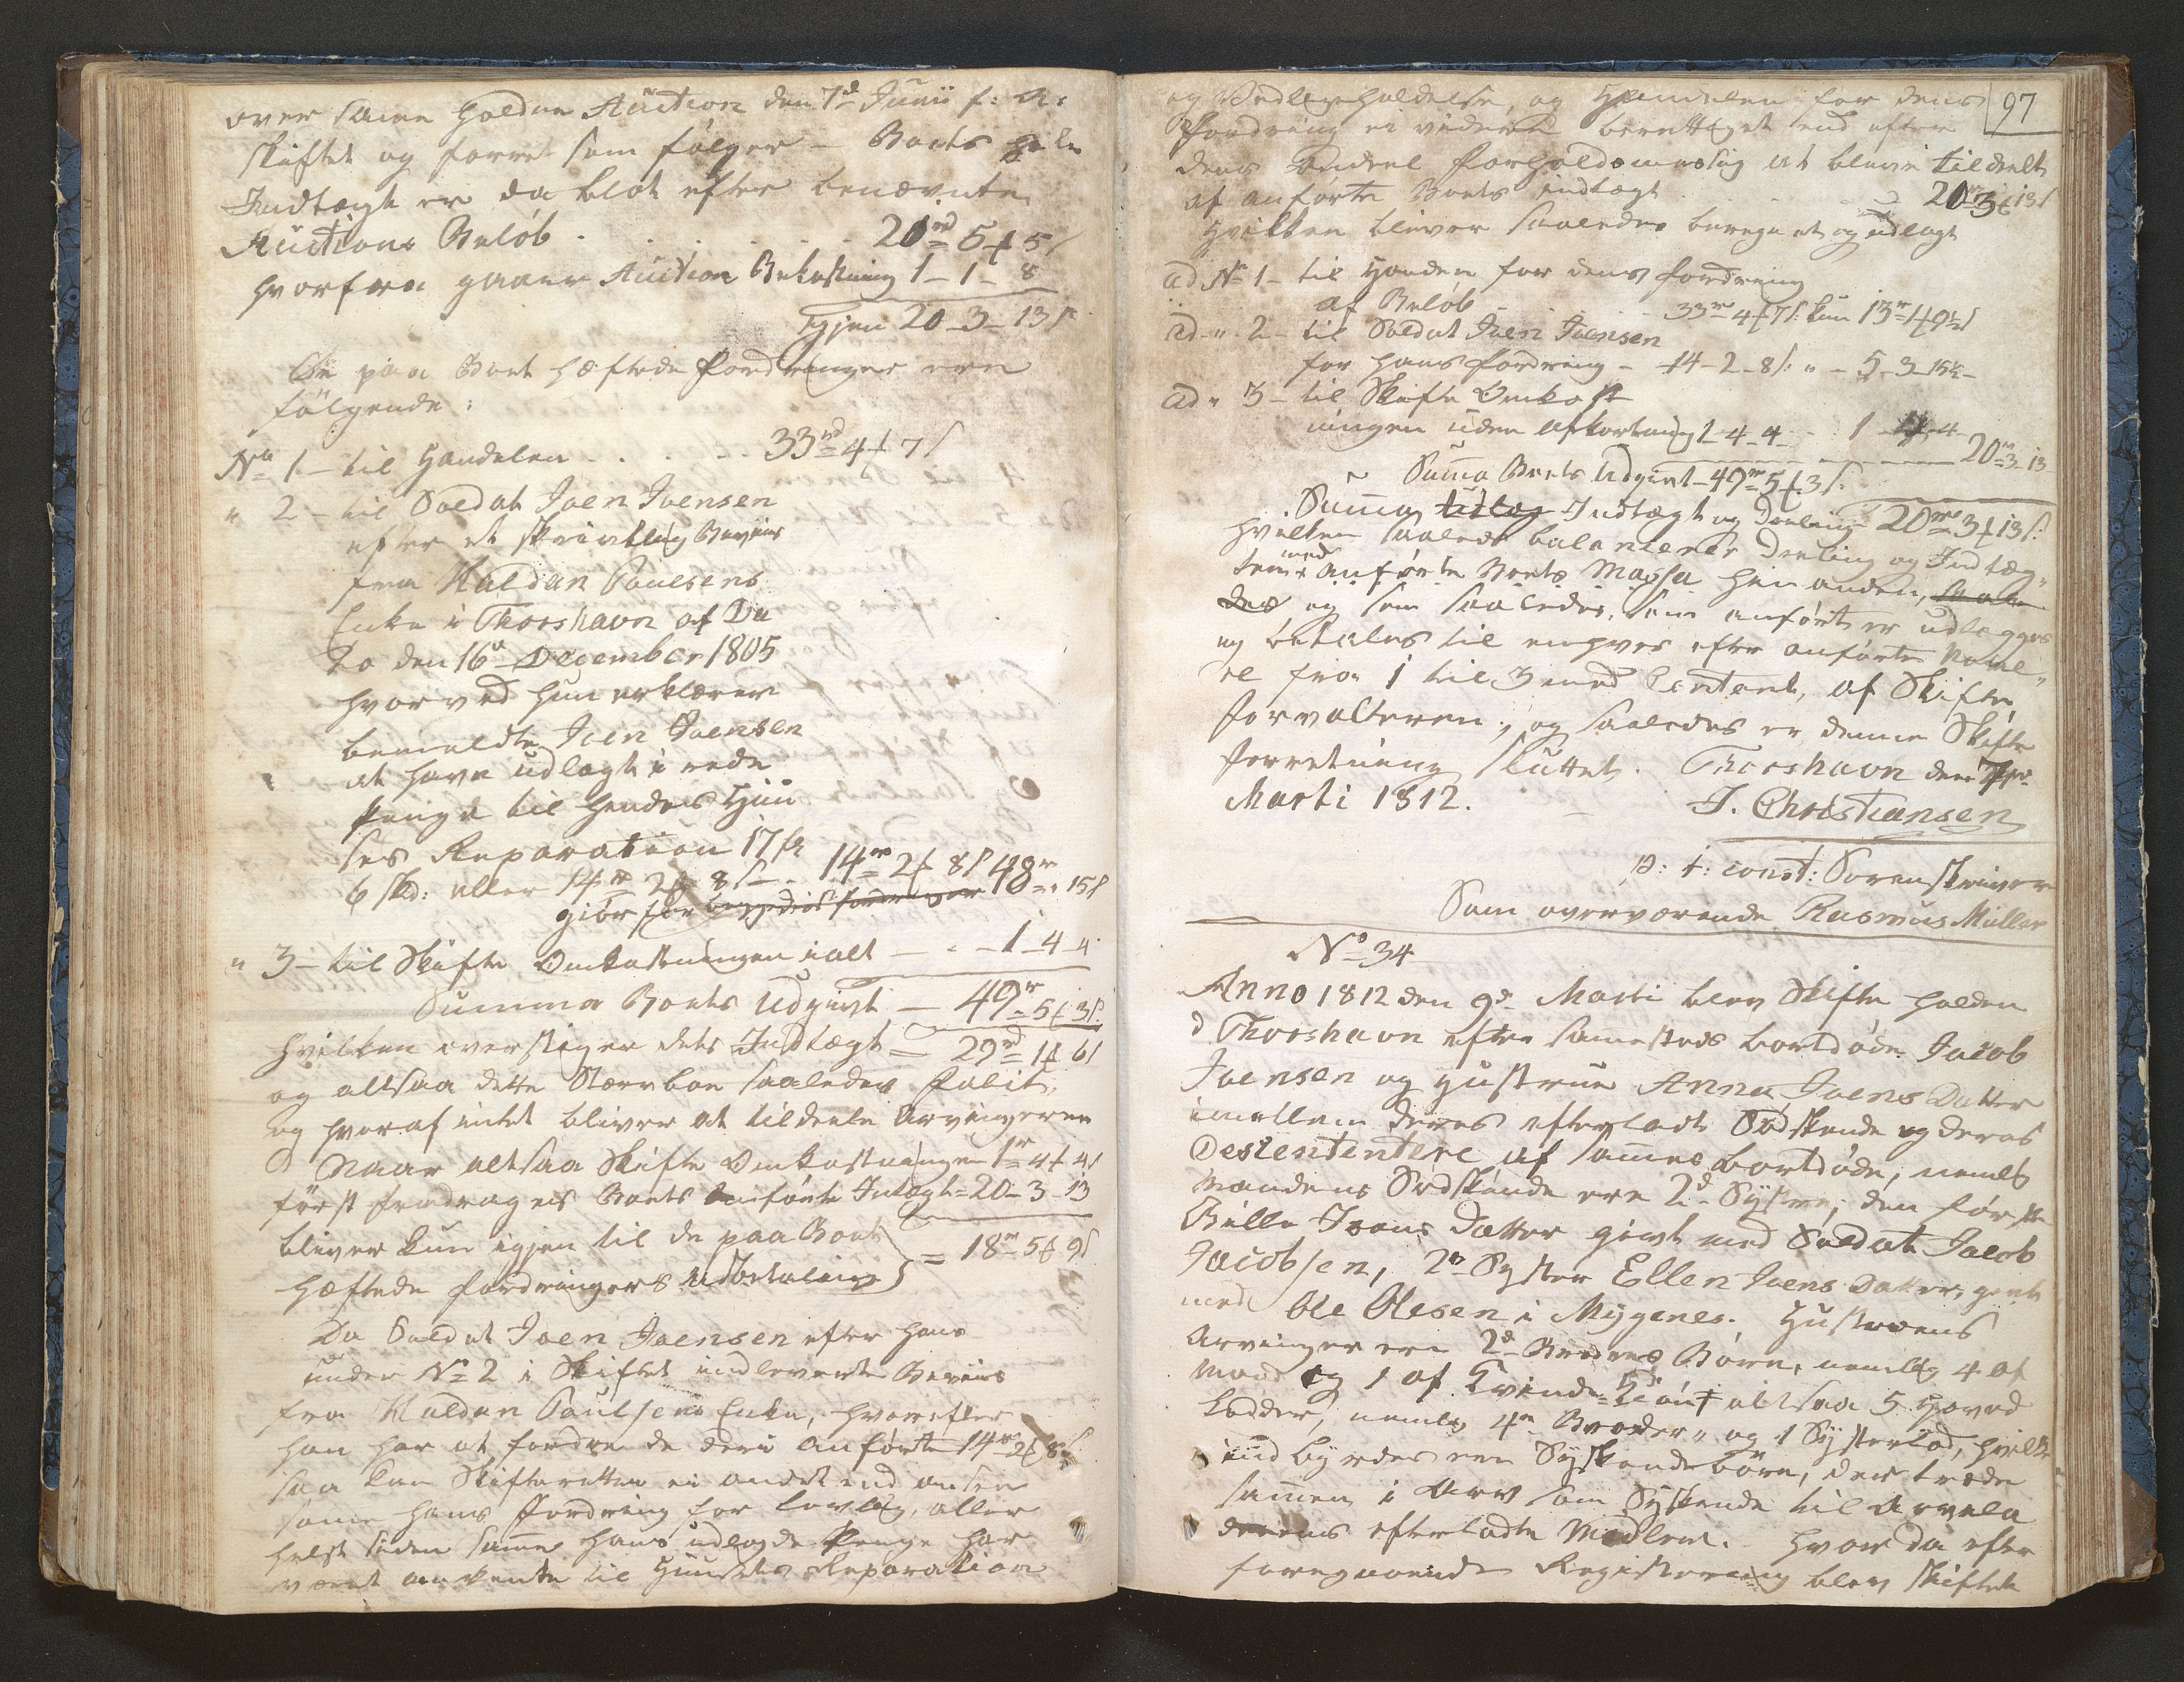 over samme holdne Auction den 7d Junii f: A:
skiftet og forret som følger — Boets hele
Indtægt er da blot efter benævnte
Auctions Beløb . . . . 20rd 5 ₰ 5 s
hvorfra gaaer Auction Bekostning 1 - 1 - 8
Igjen 20 - 3 - 13 s
De paa Boet hæftede Fordringer ere
følgende:
No 1 - til Handelen . . . . 33rd 4 ₰ 7 s
" 2 - til Soldat Joen Joensen
efter et skriftlig Beviis
fra Haldan Poulsens
Enke i Thorshavn af Da
to den 16d December 1805
hvorved hun erklærer
bemeldte Joen Joensen
at have udlagt i rede
Penge til hendes Huu
ses Reparation 17 
6 skd: eller 14rd 2 ₰ 8 s — 14rd 2 ₰ 8 s 48r - " 15 s
giør for begge dis fordringer
" 3 - til Skifte Omkostningen ialt — - 1 - 4 - 4
Summa Boets Udgivt — 49r - 5 ₰ 3 s
hvilken overstiger dets Indtægt = 29rd 1 ₰ 6 s
og altsaa dette Sterv boe saaledes Falit,
og hvoraf intet bliver at tildeele Arvingerne
Naar altsaa Skifte Omkostningen 1r 4 ₰ 4 s
først fradrages Boets anførte Intægt = 20 - 3 - 13
bliver kun igjen til de paa Boet
hæftede fordringers Udbetaling } = 18r - 5 ₰ 9 s
Da Soldat Joen Joensen efter hans
under No 2 i Skiftet indleverte Beviis
fra Haldan Poulsens Enke, hvorefter
han har at fordre de deri anførte 14r 2 ₰ 8 s
saa kan Skifteretten ei andet end ansee
samme hans Fordring for lovlig, aller
helst siden samme hans udlagde Penge har
været anvendte til Huusets Reparation
97
og Vedligeholdelse, og Handelen for dens
Fordring ei videre berettiget end efter
dens Andeel forholdsmæssig at blive tildeelt
af anførte Boets indtægt . . 20r 3 ₰ 13 s
Hvilken bliver saaledes beregnet og udlagt
ad No 1 - til Handelen for dens fordring
af Beløb - - - 33r 4 ₰ 7 s: kun 13r 1 ₰ 9½ s
ad " 2 - til Soldat Joen Joensen
for hans fordring - 14 - 2 - 8 s: " - 5 - 3 - 15½ -
ad " 3 - til Skifte Omkost
ningen uden Afkortning 1 - 4 - 4 - . 1 - 4 - 4
20r - 3 - 13
Summa Boets Udgivt - 49r 5 ₰ 3 s.
Summa Udlæg Indtægt og Deeling 20rd 3 ₰ 13 s:
hvilken saaledes balancerer Deeling og Indtæg„
ten med anførte Boets Massa hin anden,
og som saaledes, som anført er udlægges
og betales til enhver efter anførte Nome„
re fra 1 til 3 med Contant, af Skifte
forvalteren, og saaledes er denne Skifte
forretning sluttet. Thorshavn den 7de
Marti 1812. J. Christiansen
p: t: const: Sorenskriver
Som overværende Rasmus Müller
No 34
Anno 1812 den 9d Marti blev Skifte holden
i Thorshavn efter sammesteds bortdøde Jacob
Joensen og Hustrue Anna Joens Datter
imellem deres efterladte Sødskende og deres
Descentendere af samme bortdøde, nemlig
Mandens Sødskende ere 2d Systre, den første
Bille Joens Datter givt med Soldat Jacob
Jacobsen, 2n Syster Ellen Joens Datter, givt
med Ole Olesen i Mygenes. Hustruens
Arvinger ere 2d Brodres Børn, nemlig 4 af
Mand og 1 af Kvinde-Kiønt altsaa 5 Hoved
Lodder, nemlig 4n Broder„ og 1 Systerlod, hvilke
indbyrdes ere Syskendebörn, der træde
sammen i Arv som Syskende til Arvela
derens efterladte Midler. Hvor da efter
foregaaende Registrering blev skiftet